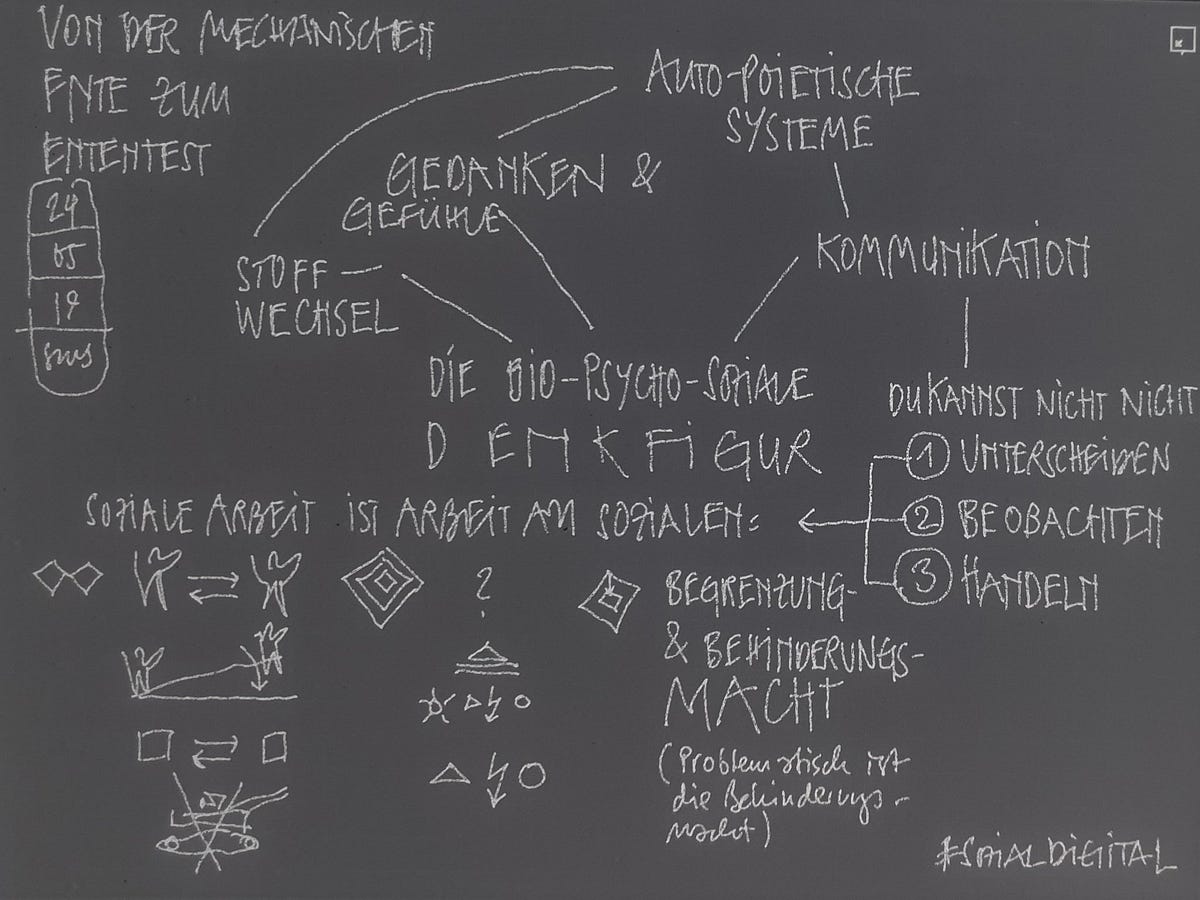 VON DER MECHANISCHEN
ENTE ZUM
ENTENTEST
24
65
19
AUTO-POIETISCHE
SYSTEME
GEDANKEN &
GEFÜHLE
STOFF-
WECHSEL
KOMMUNIKATION
DIE BIO-PSYCHO-SOZIALE
DENKFIGUR
DU KANNST NICHT NICHT
1 UNTERSCHEIDEN
2 BEOBACHTEN
3 HANDELN
SOZIALE ARBEIT IST ARBEIT AM SOZIALEN:
?
BEGRENZUNG-
& BEHINDERUNGS-
MACHT
(Problematisch ist
die Behinderungs-
macht)
#SOZIALDIGITAL